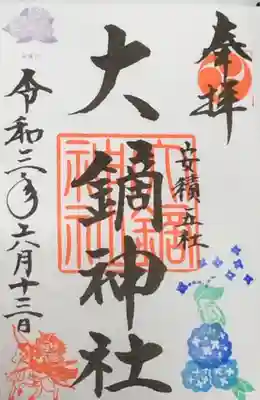 奉拝
安積五社
大鏑神社
令和三年六月十三日